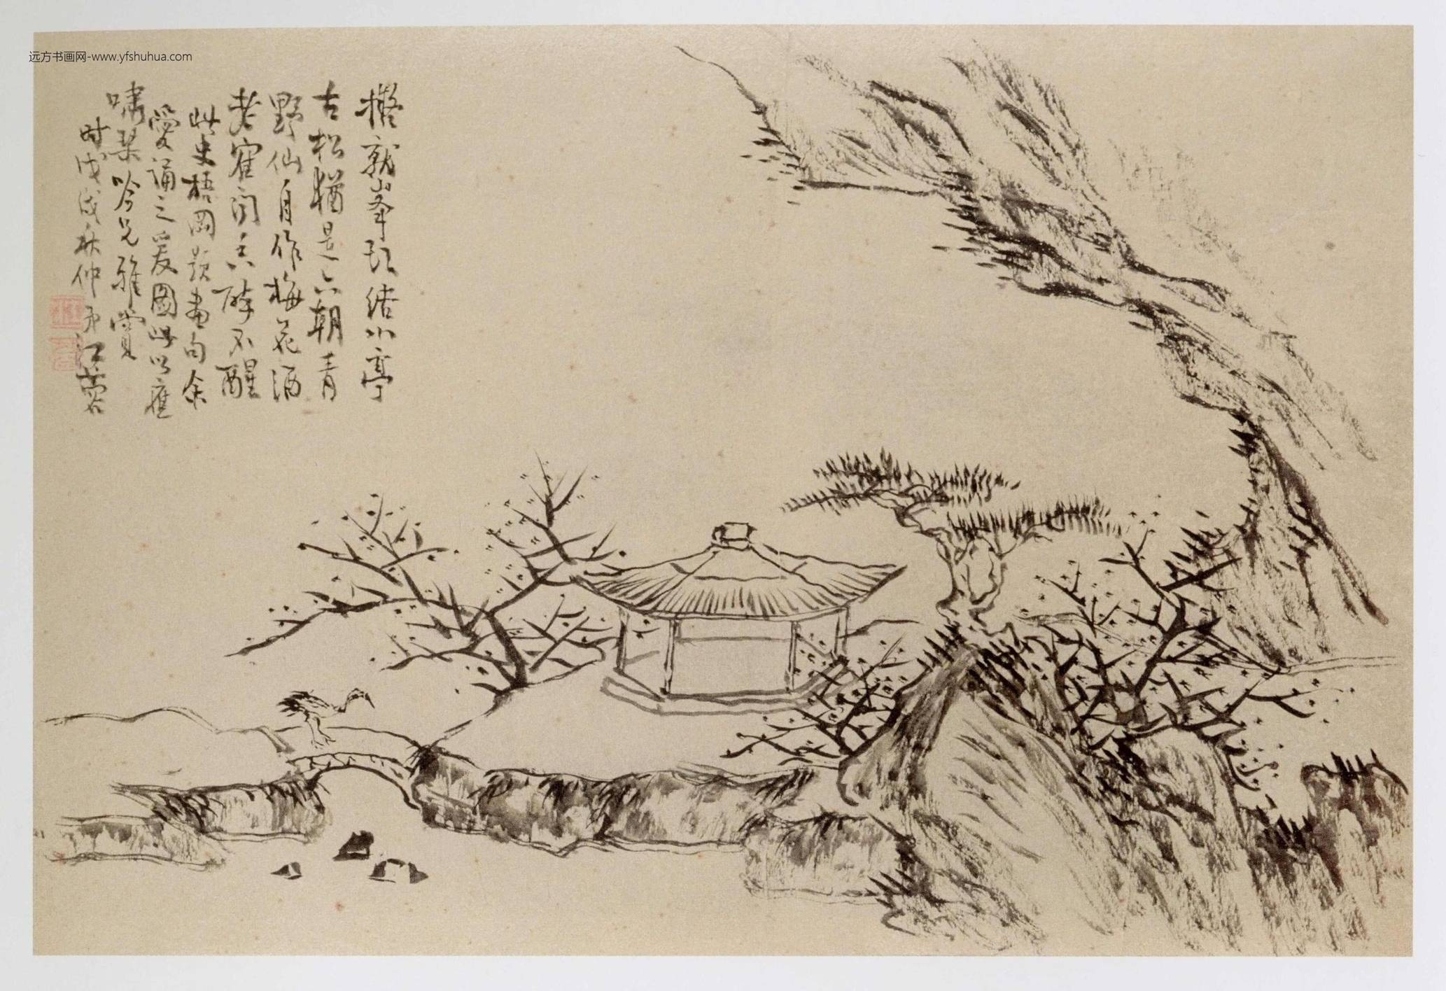 远方书画网-www.yfshuhua.com
擬就峯頭結小亭
古松猶是六朝青
野仙自作梅花酒
老崔聞香醉不醒
此史梧岡題畫句余
愛誦之爰圖此以應
嘯琹吟兄雅賞
时戊戌秋仲弟江